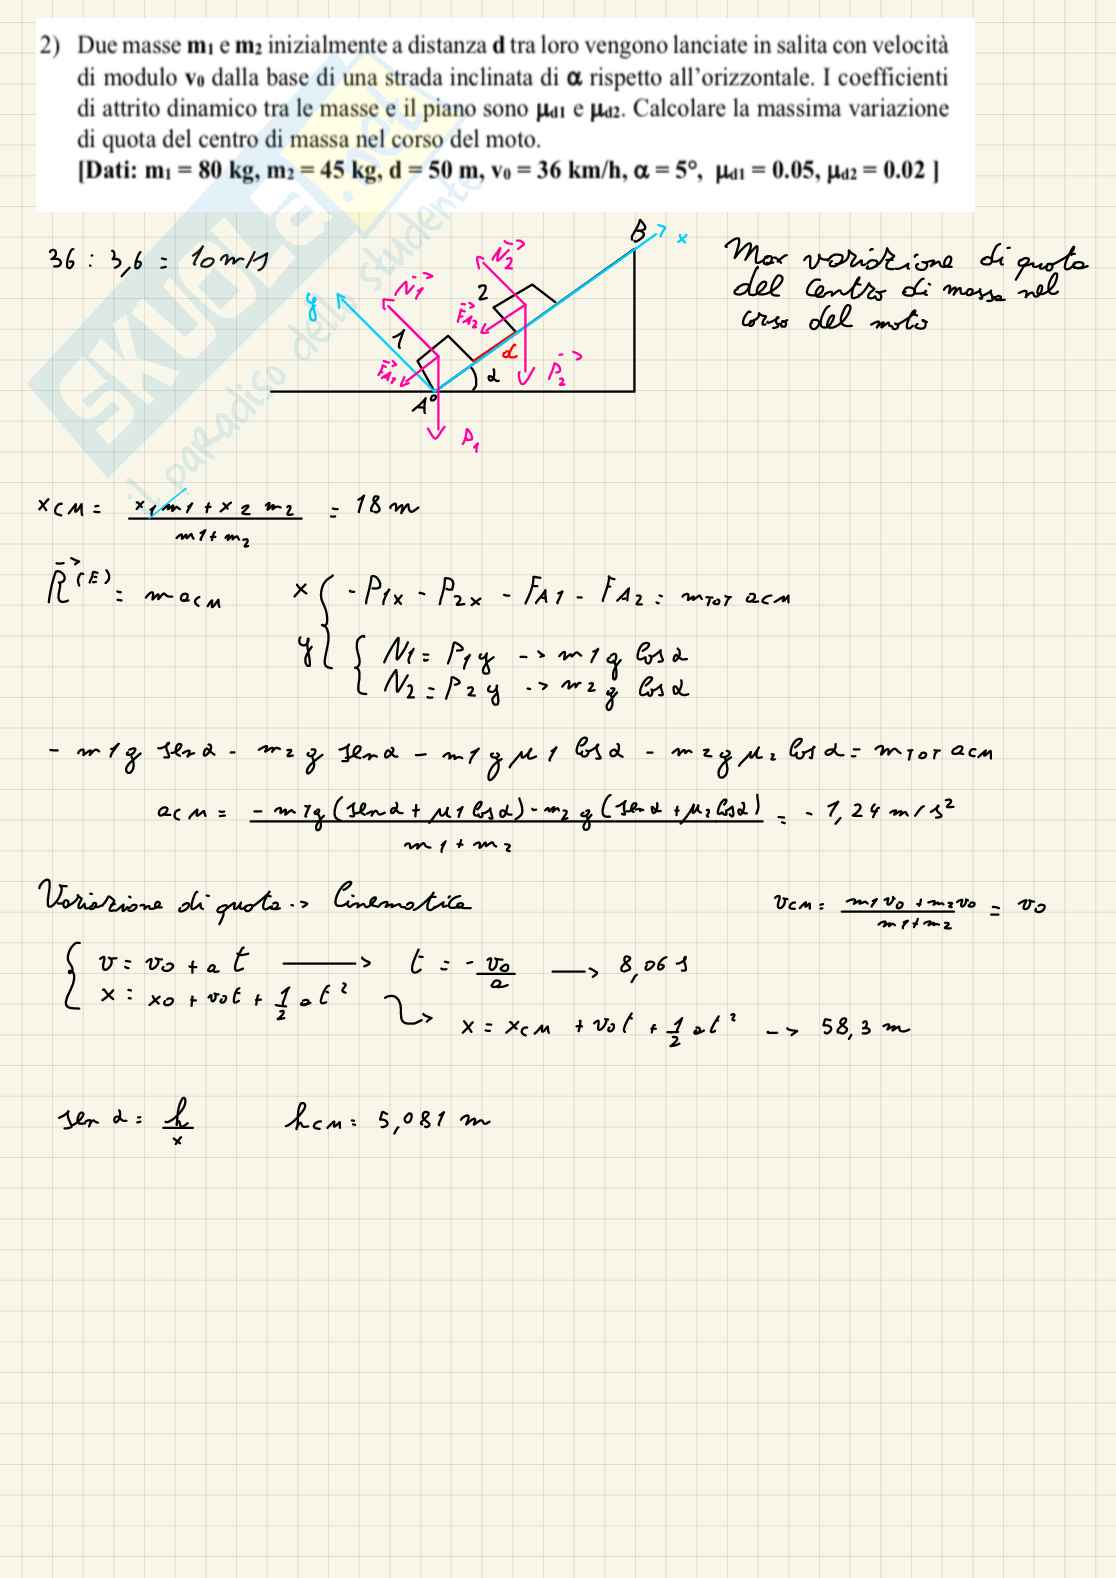 2) Due masse m₁ e m₂ inizialmente a distanza d tra loro vengono lanciate in salita con velocità
di modulo v₀ dalla base di una strada inclinata di α rispetto all'orizzontale. I coefficienti
di attrito dinamico tra le masse e il piano sono μd1 e μd2. Calcolare la massima variazione
di quota del centro di massa nel corso del moto.
[Dati: m₁ = 80 kg, m₂ = 45 kg, d = 50 m, v₀ = 36 km/h, α = 5°, μd1 = 0.05, μd2 = 0.02 ]
SKUOLA.net
il paradiso dello studente
36 : 3,6 = 10 m/s
Max variazione di quota
del centro di massa nel
corso del moto
y
N1
1
FA1
A
P1
2
N2
FA2
d
α
P2
B
x
xCM = (x1 m1 + x2 m2) / (m1 + m2) = 18 m
R⃗(E) = m aCM
x { - P1x - P2x - FA1 - FA2 = mTOT aCM
y { N1 = P1y -> m1 g cos α
N2 = P2y -> m2 g cos α
- m1 g sen α - m2 g sen α - m1 g μ1 cos α - m2 g μ2 cos α = mTOT aCM
aCM = (- m1 g (sen α + μ1 cos α) - m2 g (sen α + μ2 cos α)) / (m1 + m2) = - 1,24 m/s²
Variazione di quota -> Cinematica
vCM = (m1 v0 + m2 v0) / (m1 + m2) = v0
v = v0 + a t → t = - v0/a → 8,06 s
x = x0 + v0t + 1/2 a t²
x = xCM + v0t + 1/2 a t² -> 58,3 m
sen α = h/x hCM = 5,081 m